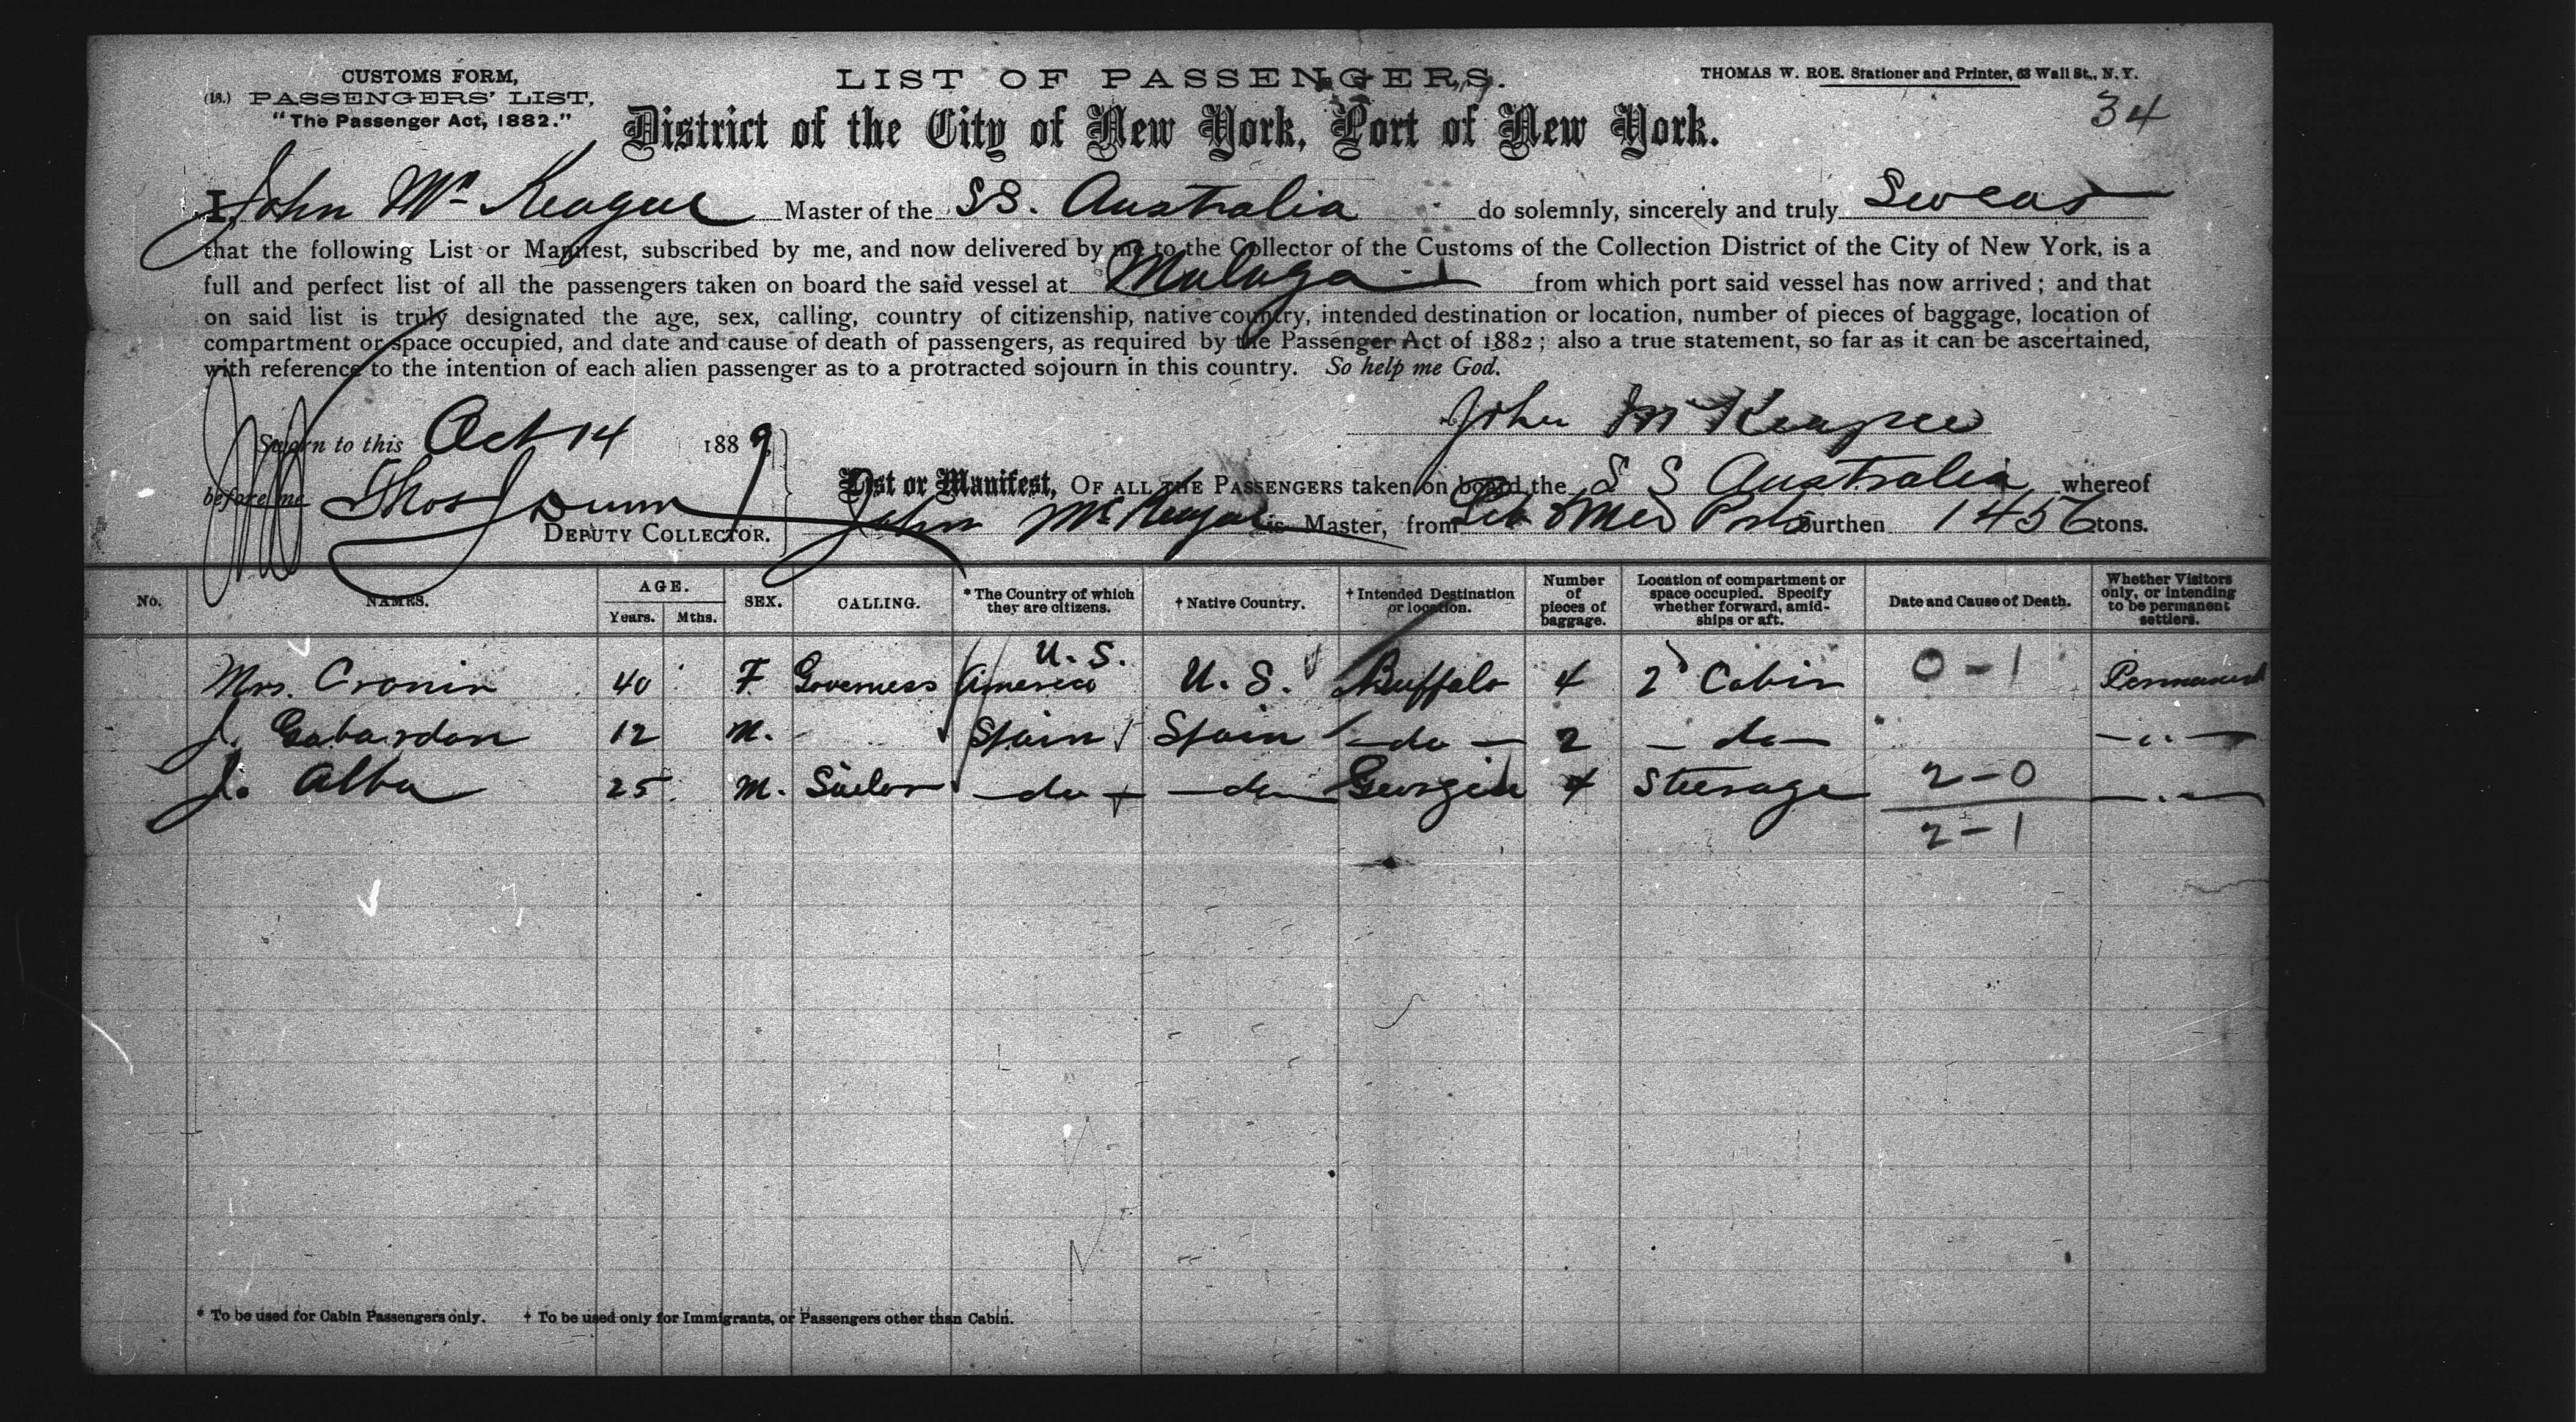 CUSTOMS FORM,
(18.) PASSENGERS' LIST,
"The Passenger Act, 1882."
LIST OF PASSENGERS.
THOMAS W. ROE. Stationer and Printer, 63 Wall St., N. Y.
34
District of the City of New York, Port of New York.
I, John Mc Keague Master of the SS. Australia do solemnly, sincerely and truly Swear
that the following List or Manifest, subscribed by me, and now delivered by me to the Collector of the Customs of the Collection District of the City of New York, is a
full and perfect list of all the passengers taken on board the said vessel at Malaga from which port said vessel has now arrived; and that
on said list is truly designated the age, sex, calling, country of citizenship, native country, intended destination or location, number of pieces of baggage, location of
compartment or space occupied, and date and cause of death of passengers, as required by the Passenger Act of 1882; also a true statement, so far as it can be ascertained,
with reference to the intention of each alien passenger as to a protracted sojourn in this country. So help me God.
John McKeague
Sworn to this Oct 14 1889
before me Thos J Dunn
DEPUTY COLLECTOR.
List or Manifest, OF ALL THE PASSENGERS taken on board the S S Australia whereof
John McKeague is Master, from Med Ports Burthen 1456 tons.
No. NAMES. AGE. Years. Mths. SEX. CALLING. * The Country of which they are citizens. † Native Country. † Intended Destination or location. Number of pieces of baggage. Location of compartment or space occupied. Specify whether forward, amidships or aft. Date and Cause of Death. Whether Visitors only, or intending to be permanent settlers.
U. S.
Mrs. Cronin 40 F Governess America U. S. Buffalo 4 2 Cabin 0-1 Permanent
J. Gabardon 12 M. Spain Spain - do - 2 - do - - " -
J. Alba 25 M. Sailor - do - - do - Georgia 4 Steerage 2-0 - " -
2-1
* To be used for Cabin Passengers only. † To be used only for Immigrants, or Passengers other than Cabin.